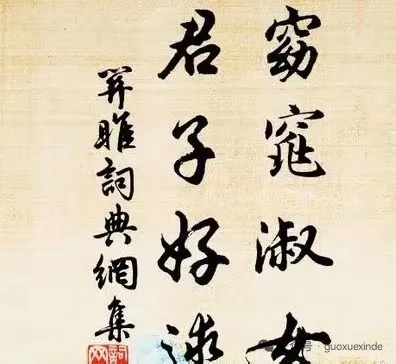 窈窕淑女
君子好逑
关雎詞典網集
号 · guoxuexinde